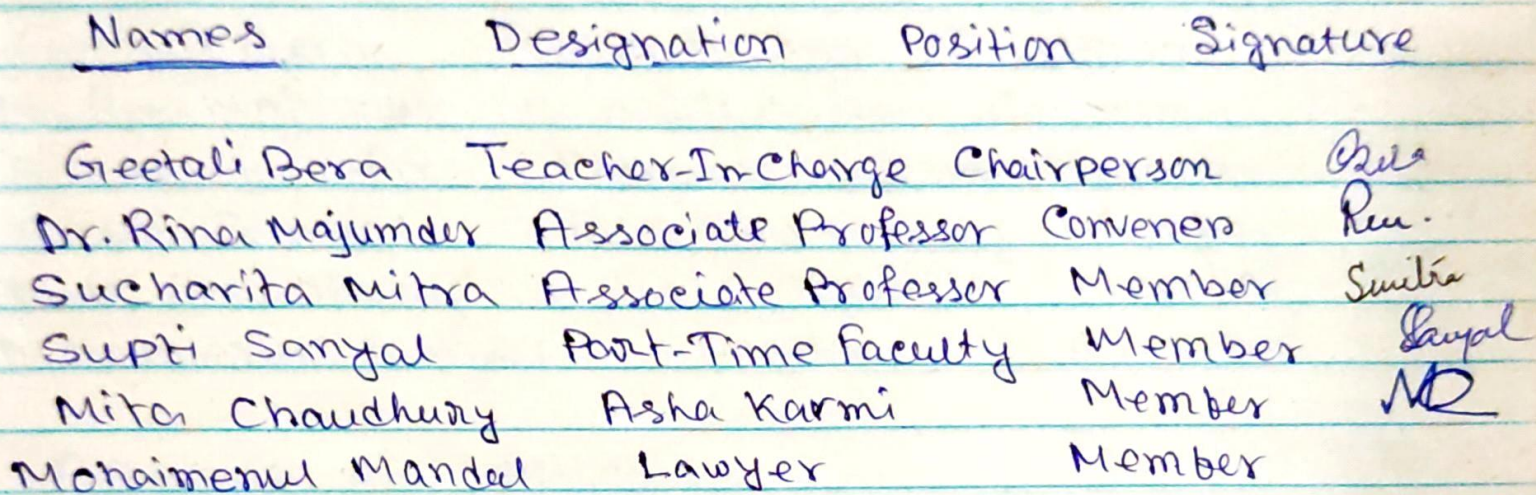 Names Designation Position Signature
Geetali Bera Teacher-In-Charge Chairperson Bera
Dr. Rina Majumder Associate Professor Convener
Sucharita Mitra Associate Professor Member Smitra
Supti Sanyal Part-Time Faculty Member Sanyal
Mita Chaudhury Asha Karmi Member
Mohaimenul Mandal Lawyer Member